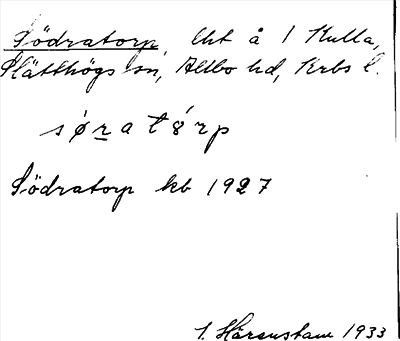 Södratorp, lht å 1 Kulla,
Slätthögs sn, Allbo hd, Krbs l.
sǿratórp
Södratorp kb 1927
1. Härenstam 1933